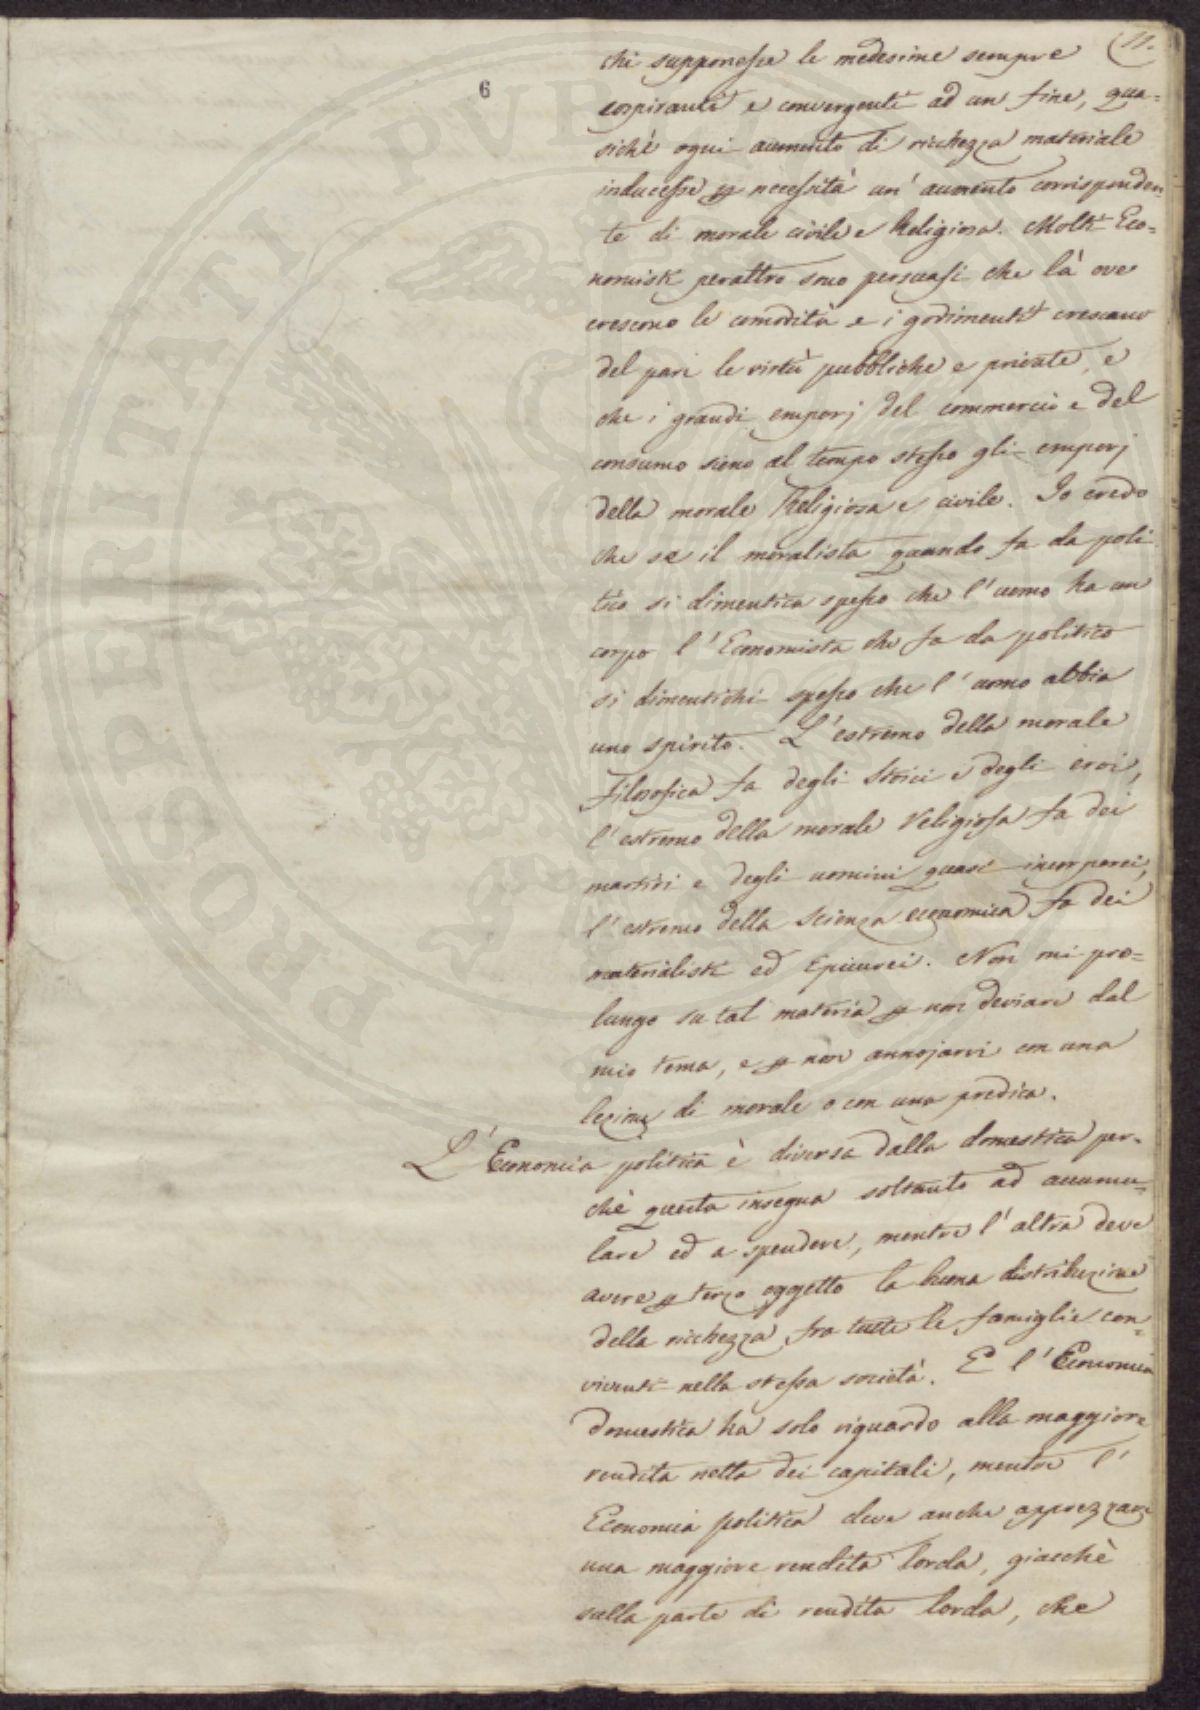 11.
6
chi supponesse le medesime sempre
cospiranti e convergenti ad un fine, qua=
sichè ogni aumento di ricchezza materiale
inducesse p necessità un' aumento corrisponden
te di morale civile e Religiosa. Molti Eco=
nomisti peraltro sono persuasi che là ove
crescono le comodità e i godimenti crescano
del pari le virtù pubbliche e private, e
che i grandi emporj del commercio e del
consumo sieno al tempo stesso gli emporj
della morale Religiosa e civile. Io credo
che se il moralista quando fa da poli
tico si dimentica spesso che l'uomo ha un
corpo l'Economista che fa da politico
si dimentichi spesso che l'uomo abbia
uno spirito. L'estremo della morale
Filosofica fa degli Stoici e degli eroi,
l'estremo della morale Religiosa fa dei
martiri e degli uomini quasi incorporei,
l'estremo della scienza economica fa dei
materialisti ed Epicurei. Non mi pro=
lungo su tal materia p non deviare dal
mio tema, e p non annojarvi con una
lezione di morale o con una predica.
L'Economia politica è diversa dalla domestica per=
chè questa insegna soltanto ad accumu=
lare ed a spendere, mentre l'altra deve
avere p terzo oggetto la buona distribuzione
della ricchezza fra tutte le famiglie con=
viventi nella stessa società. E l'Economia
domestica ha solo riguardo alla maggiore
rendita netta dei capitali, mentre l'
Economia politica deve anche apprezzare
una maggiore rendita lorda, giacchè
sulla parte di rendita lorda, che
PROSPERITATI PVBLICAE